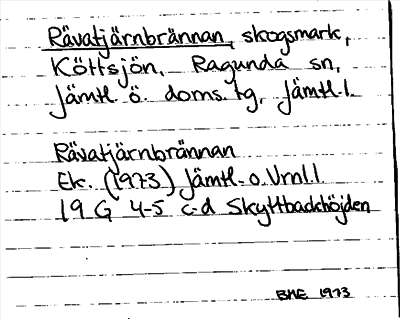 Rävatjärnbrännan, skogsmark,
Köttsjön, Ragunda sn,
Jämtl. ö. doms. tg, Jämtl. l.
Rävatjärnbrännan
Ek. (1973) Jämtl. o. Vrnl. l.
19 G 4-5 c-d Skyttbackhöjden
BME 1973